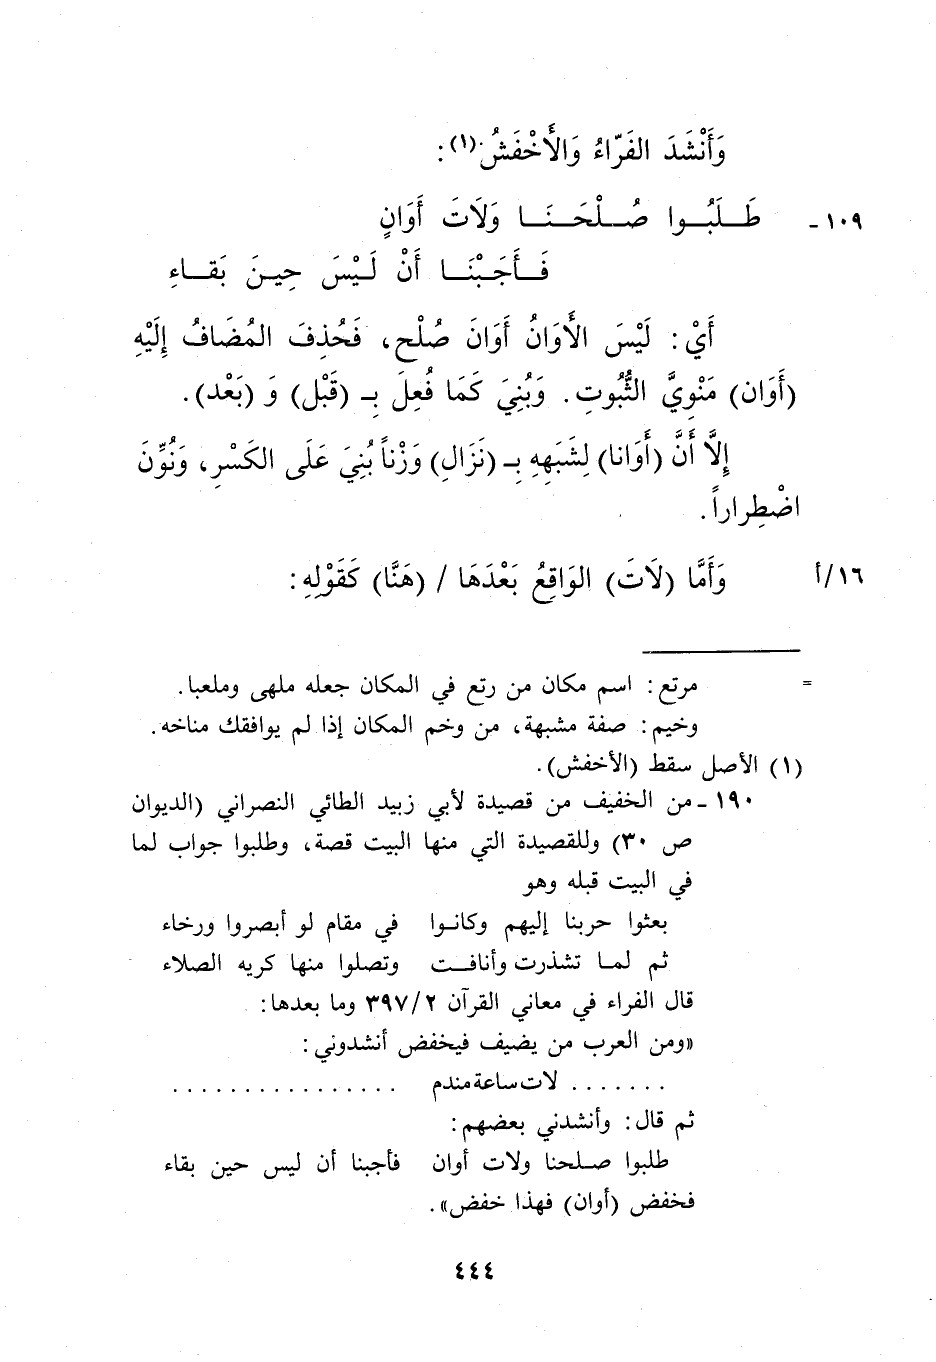 وَأَنْشَدَ الفَرّاءُ وَالأَخْفَشُ(١):
١٠٩ - طَـلَبُـوا صُـلْحَـنَـا وَلَاتَ أَوَانٍ
فَـأَجَـبْنَـا أَنْ لَـيْسَ حِيـنَ بَقـاءِ
أَيْ: لَيْسَ الأَوَانُ أَوَانَ صُلْحٍ، فَحُذِفَ المُضَافُ إِلَيْهِ
(أَوَان) مَنْوِيَّ الثُّبُوتِ. وَبُنِيَ كَمَا فُعِلَ بِـ (قَبْل) وَ (بَعْد).
إِلَّا أَنَّ (أَوَانا) لِشَبَهِهِ بِـ (نَزَالِ) وَزْناً بُنِيَ عَلَى الكَسْرِ، وَنُوِّنَ
اضْطِراراً.
١٦/أ وَأَمَّا (لَاتَ) الوَاقِعُ بَعْدَهَا / (هَنَّا) كَقَوْلِهِ:
= مرتع: اسم مكان من رتع في المكان جعله ملهى وملعبا.
وخيم: صفة مشبهة، من وخم المكان إذا لم يوافقك مناخه.
(١) الأصل سقط (الأخفش).
١٩٠ - من الخفيف من قصيدة لأبي زبيد الطائي النصراني (الديوان
ص ٣٠) وللقصيدة التي منها البيت قصة، وطلبوا جواب لما
في البيت قبله وهو
بعثوا حربنا إليهم وكانـوا في مقام لو أبصروا ورخاء
ثم لمـا تشذرت وأنافـت وتصلوا منها كريه الصلاء
قال الفراء في معاني القرآن ٣٩٧/٢ وما بعدها:
«ومن العرب من يضيف فيخفض أنشدوني:
. . . . . . . لات ساعة مندم . . . . . . . . . . . . . . . .
ثم قال: وأنشدني بعضهم:
طلبوا صـلحنا ولات أوان فأجبنا أن ليس حين بقاء
فخفض (أوان) فهذا خفض».
٤٤٤